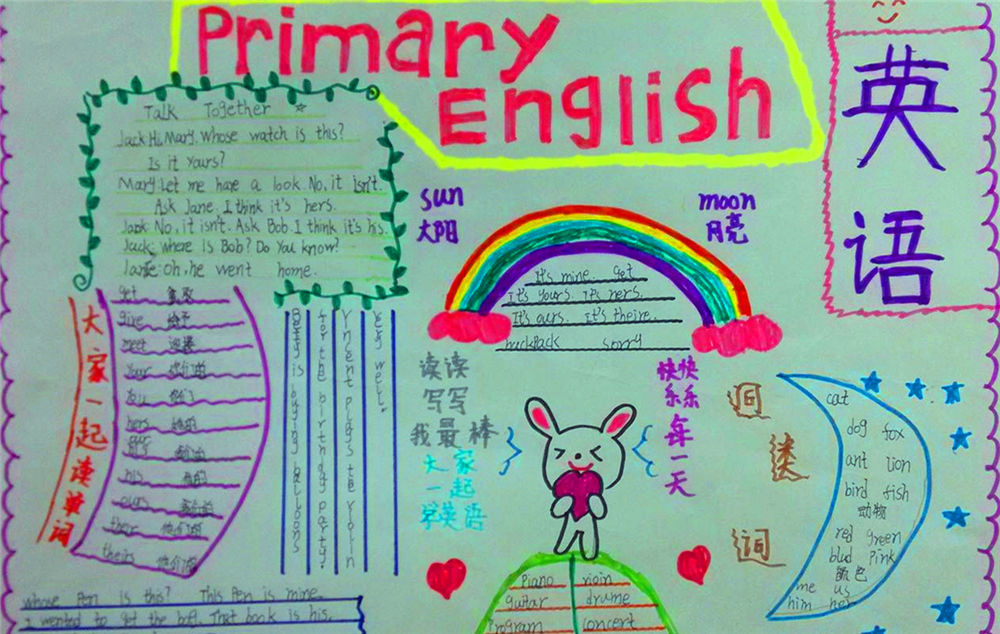 Primary
English
英
语
Talk Together
Jack: Hi, Mary. Whose watch is this?
Is it Yours?
Mary: Let me have a look. No, it isn't.
Ask Jane. I think it's hers.
No, it isn't. Ask Bob. I think it's his.
Jack: Where is Bob? Do You know?
Oh, he went home.
sun
太阳
moon
月亮
It's mine. get
It's yours. It's hers.
It's ours. It's theire.
backpack sorry
大家一起读单词
get
give 给予
meet 迎接
Your
You
hers 她的
his 他的
ours
their 他们的
theirs
Betty is buying balloons
for the birthday party.
Vincent plays the violin
very well.
读读
写写
我最棒
大家
一起
学英语
快快
乐乐
每
一
天
词
cat
dog fox
ant lion
bird fish
动物
red green
blud Pink
颜色
me us
him her
Piano vioin
guitar drume
Program concert
whose Pen is this? This Pen is mine.
I wented to get the ball. That book is his.